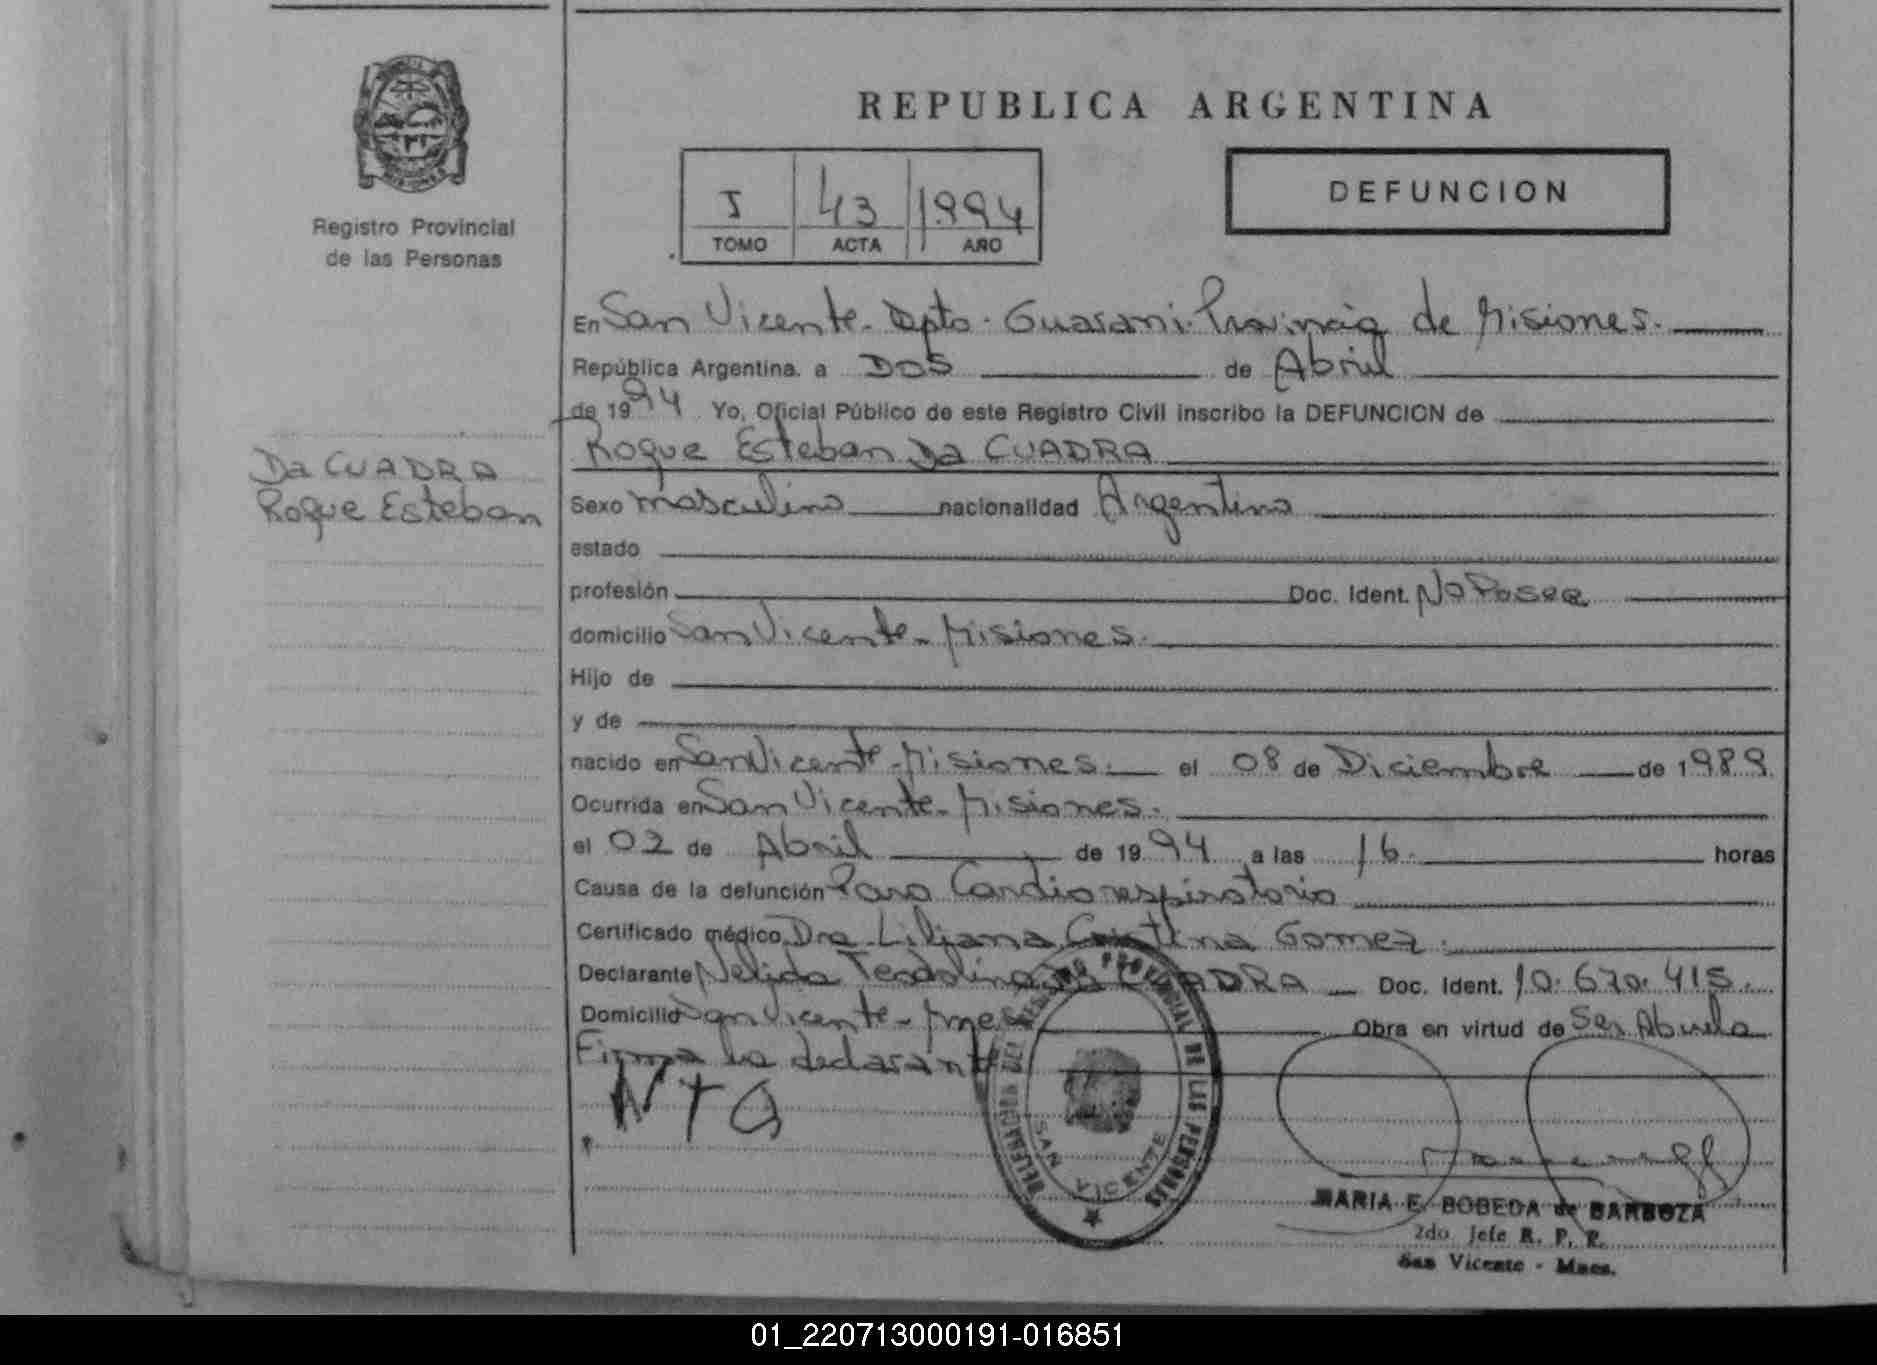 REPUBLICA ARGENTINA
DEFUNCION
MISIONES
Registro Provincial
de las Personas
I 43 1994
TOMO ACTA AÑO
En San Vicente - Dpto - Guarani - Provincia de Misiones.
República Argentina. a DOS de Abril
de 1994 Yo, Oficial Público de este Registro Civil inscribo la DEFUNCION de
Roque Esteban Da CUADRA
Da CUADRA
Roque Esteban
Sexo masculino nacionalidad Argentino
estado
profesión Doc. Ident. No Posee
domicilio San Vicente - Misiones.
Hijo de
y de
nacido en San Vicente - Misiones. el 08 de Diciembre de 1989
Ocurrida en San Vicente - Misiones.
el 02 de Abril de 1994 a las 16 horas
Causa de la defunción Paro Cardiorespiratorio
Certificado médico Dra. Liliana Cristina Gomez.
Declarante Nelida Da CUADRA Doc. Ident. 10.670.415.
Domicilio San Vicente - Mnes Obra en virtud de Ser Abuela
Firma la declarante
DELEGACION DEL REGISTRO PROVINCIAL DE LAS PERSONAS
SAN VICENTE
MARIA E. BOBEDA de BARBOZA
2do. Jefe R. P. P.
San Vicente - Mnes.
01_220713000191-016851